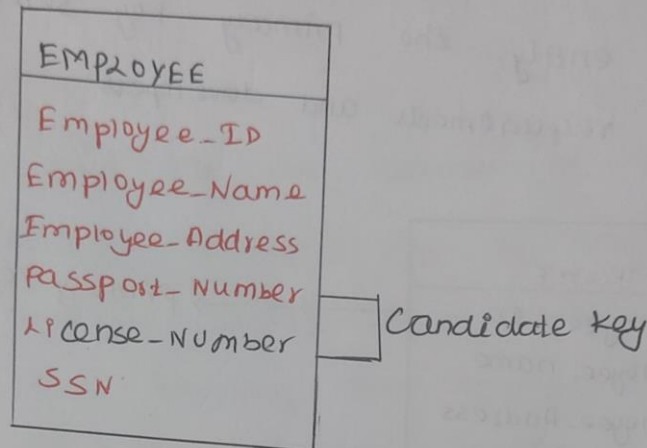 EMPLOYEE
Employee_ID
Employee_Name
Employee_Address
Passport_Number
License_Number
Candidate Key
SSN